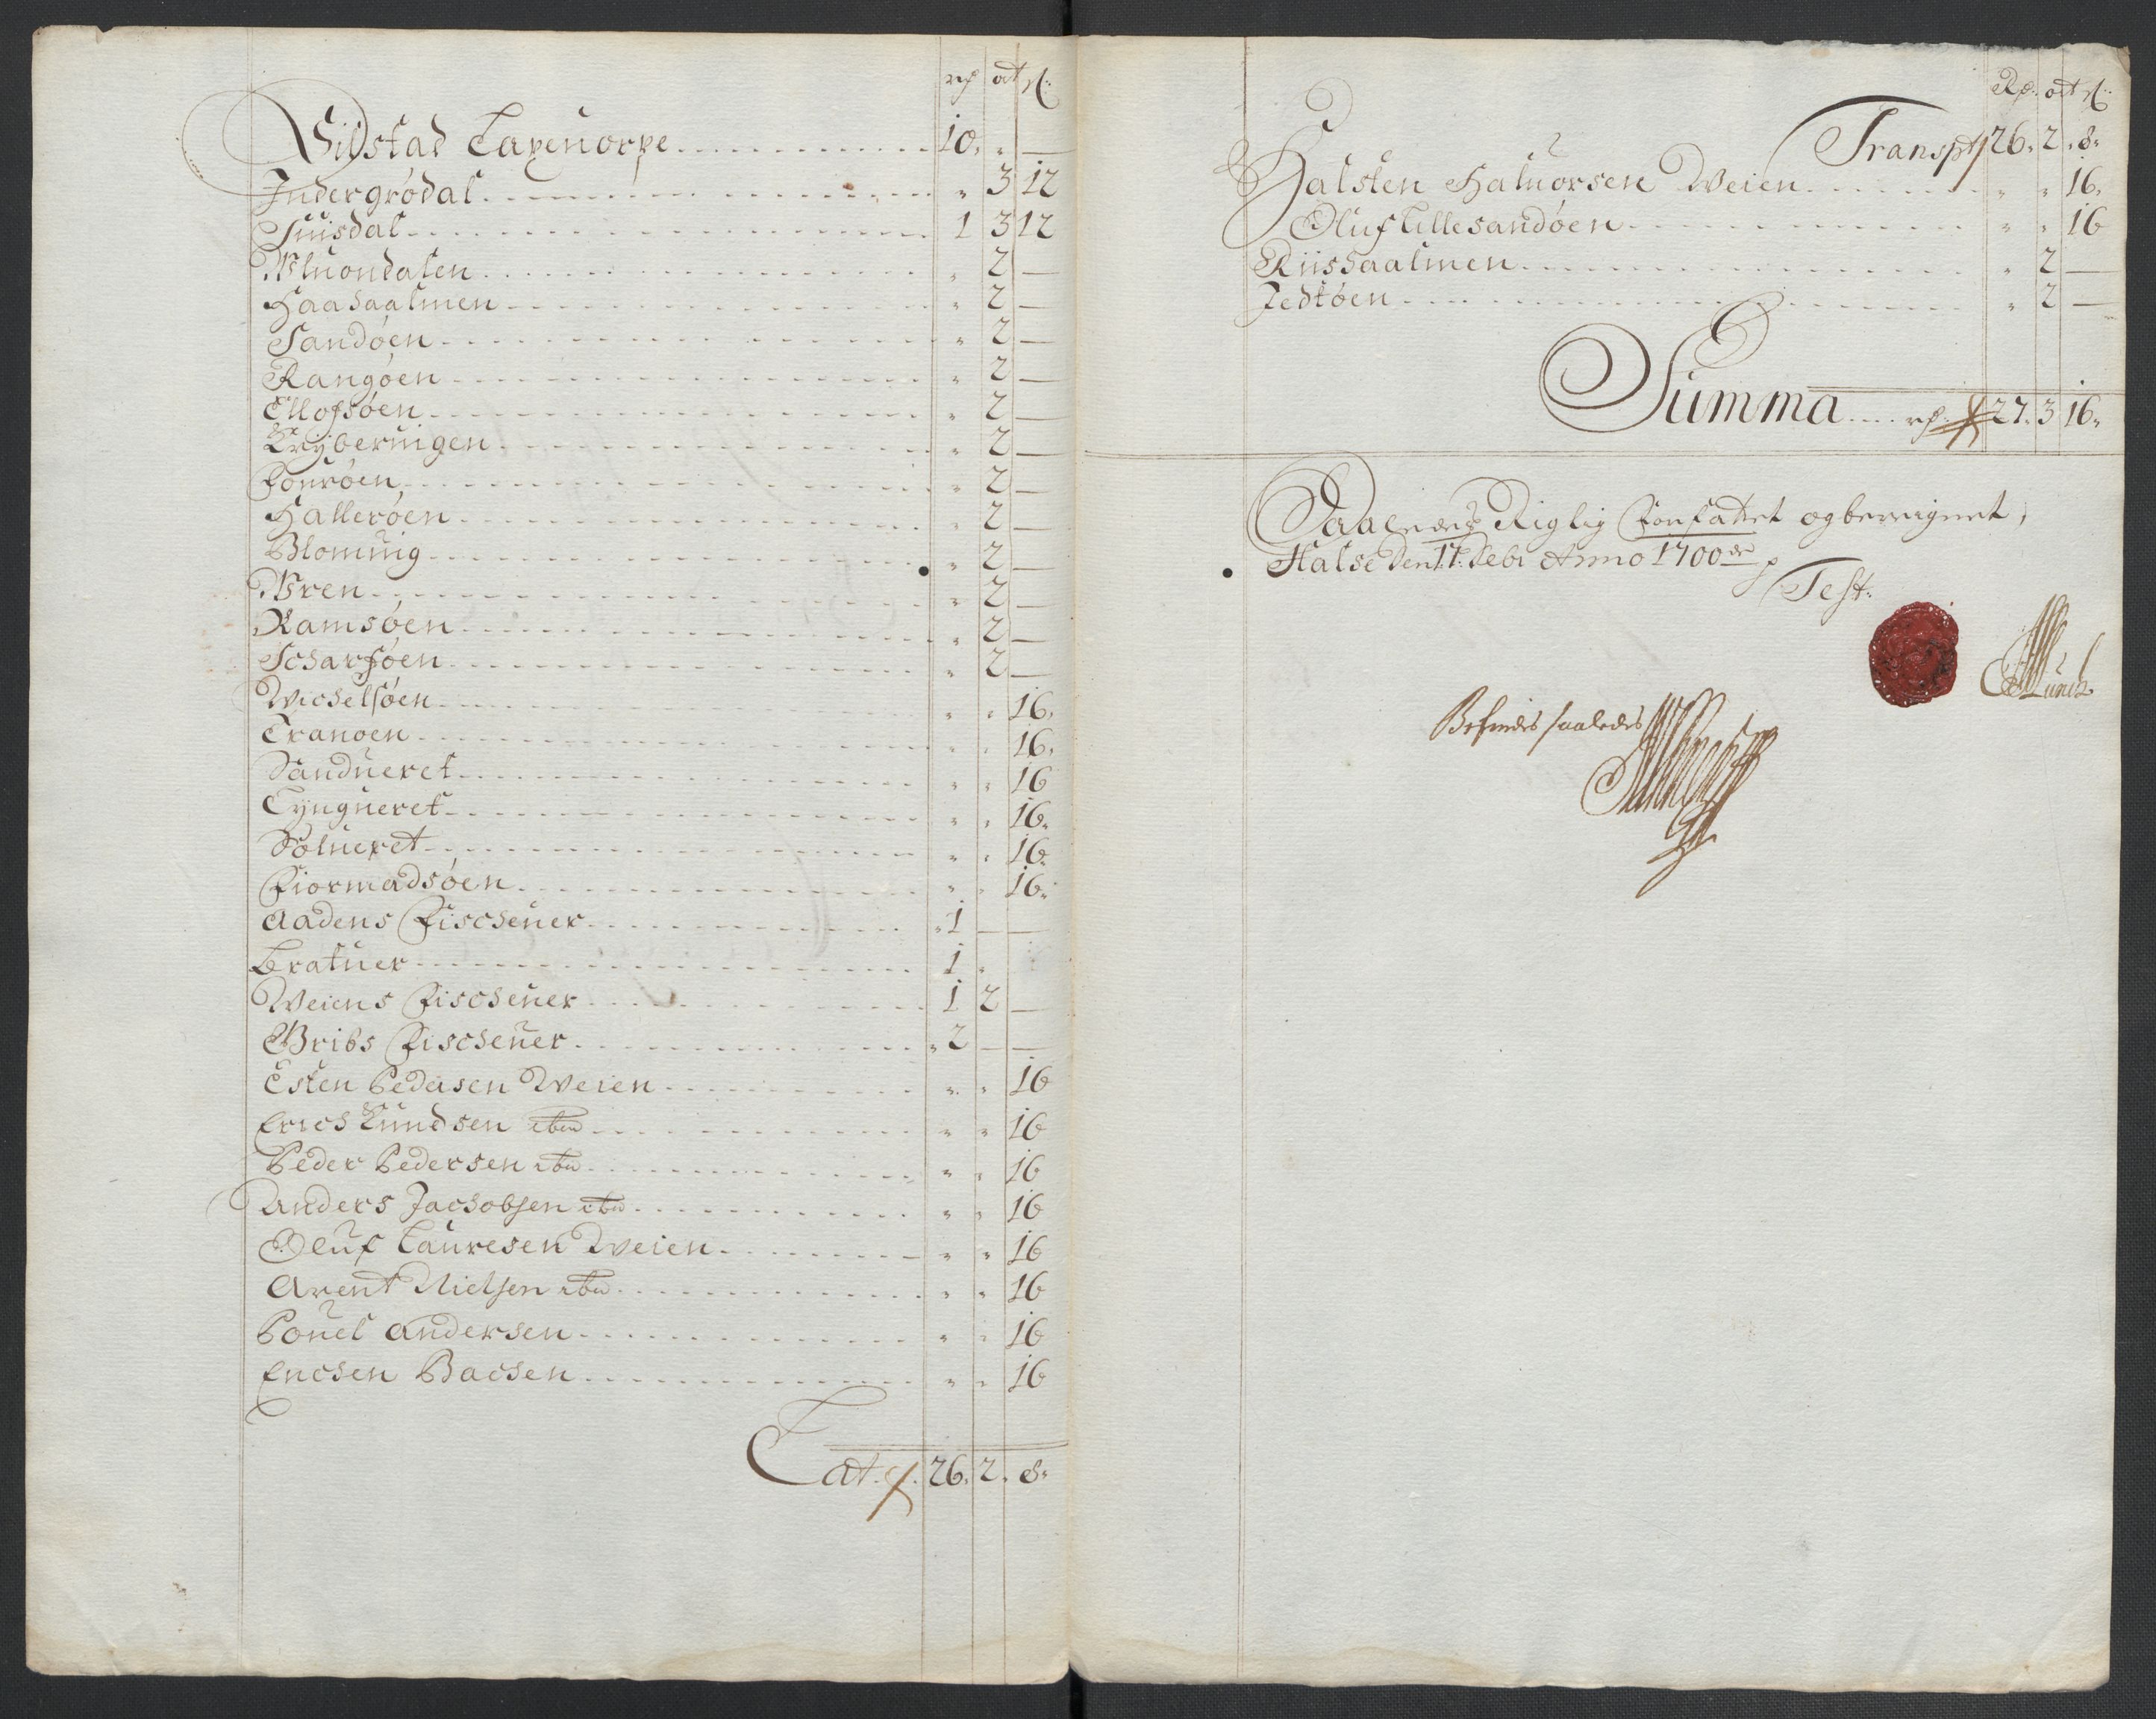 rd ort s:
Vilstad Laxeuorpe 10. " —
Indergrødal " 3 12
Suisdal 1 3 12
Aluondalen " 2 —
Haahaalmen " 2 —
Sandøen " 2 —
Rangøen " 2 —
Ellofsøen " 2 —
Kryberuigen " 2 —
Fourøen " 2 —
Hallerøen " 2 —
Blomuig " 2 —
Wren " 2 —
Ramsøen " 2 —
Scharsøen " 2 —
Wechelsøen " " 16.
Tranøen " " 16.
Sandueret " " 16
Tyngueret " " 16.
Sølueret " " 16.
Fiormadsøen " " 16.
Aadens Fischeuer 1 — —
Bratuer 1 "
Weiens Fischeuer 1 2 —
Gribs Fischeuer 2 — —
Esten Pedersen Weien " " 16
Erich Knudsen ibid " " 16
Peder Pedersen ibid " " 16
Anders Jachobsen ibid " " 16
Oluf Lauresen Weien " " 16
Arent Nielsen ibid " " 16
Pouel Andersen " " 16
Enchen Bachen " " 16
Lat. 26. 2. 8.
Rd. ort s:
Transpt 26. 2. 8.
Halsten Haluorsen Weien " " 16.
Oluf Lillesandøen " " 16
Riishaalmen " 2 —
Jedtøen " 2 —
Summa rd. 27. 3 16.
Rigtig Confattet og beregnet,
Halse Den 17: Febr Anno 1700
Test:
Munch
Befindes saaledes